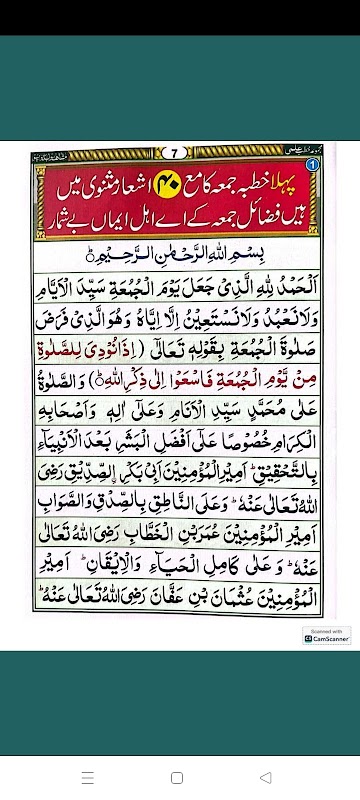 7
1
پہلا خطبہ جمعہ کا مع ۴۰ اشعار مثنوی میں
ہیں فضائل جمعہ کے اے اہل ایماں بے شمار
بِسْمِ اللهِ الرَّحْمٰنِ الرَّحِيْمِ
اَلْحَمْدُ لِلّٰهِ الَّذِيْ جَعَلَ يَوْمَ الْجُمُعَةِ سَيِّدَ الْاَيَّامِ
وَلَا نَعْبُدُ وَلَا نَسْتَعِيْنُ اِلَّا اِيَّاهُ وَهُوَ الَّذِيْ فَرَضَ
صَلٰوةَ الْجُمُعَةِ بِقَوْلِهٖ تَعَالٰى (اِذَا نُوْدِيَ لِلصَّلٰوةِ
مِنْ يَّوْمِ الْجُمُعَةِ فَاسْعَوْا اِلٰى ذِكْرِ اللهِ) وَالصَّلٰوةُ
عَلٰى مُحَمَّدٍ سَيِّدِ الْاَنَامِ وَعَلٰى اٰلِهٖ وَاَصْحَابِهِ
الْكِرَامِ خُصُوْصًا عَلٰى اَفْضَلِ الْبَشَرِ بَعْدَ الْاَنْبِيَآءِ
بِالتَّحْقِيْقِ اَمِيْرِ الْمُؤْمِنِيْنَ اَبِيْ بَكْرِ ۨالصِّدِّيْقِ رَضِيَ
اللهُ تَعَالٰى عَنْهُ وَعَلَى النَّاطِقِ بِالصِّدْقِ وَالصَّوَابِ
اَمِيْرِ الْمُؤْمِنِيْنَ عُمَرَ بْنِ الْخَطَّابِ رَضِيَ اللهُ تَعَالٰى
عَنْهُ وَعَلٰى كَامِلِ الْحَيَآءِ وَالْاِيْقَانِ اَمِيْرِ
الْمُؤْمِنِيْنَ عُثْمَانَ بْنِ عَفَّانَ رَضِيَ اللهُ تَعَالٰى عَنْهُ
Scanned with
CS CamScanner